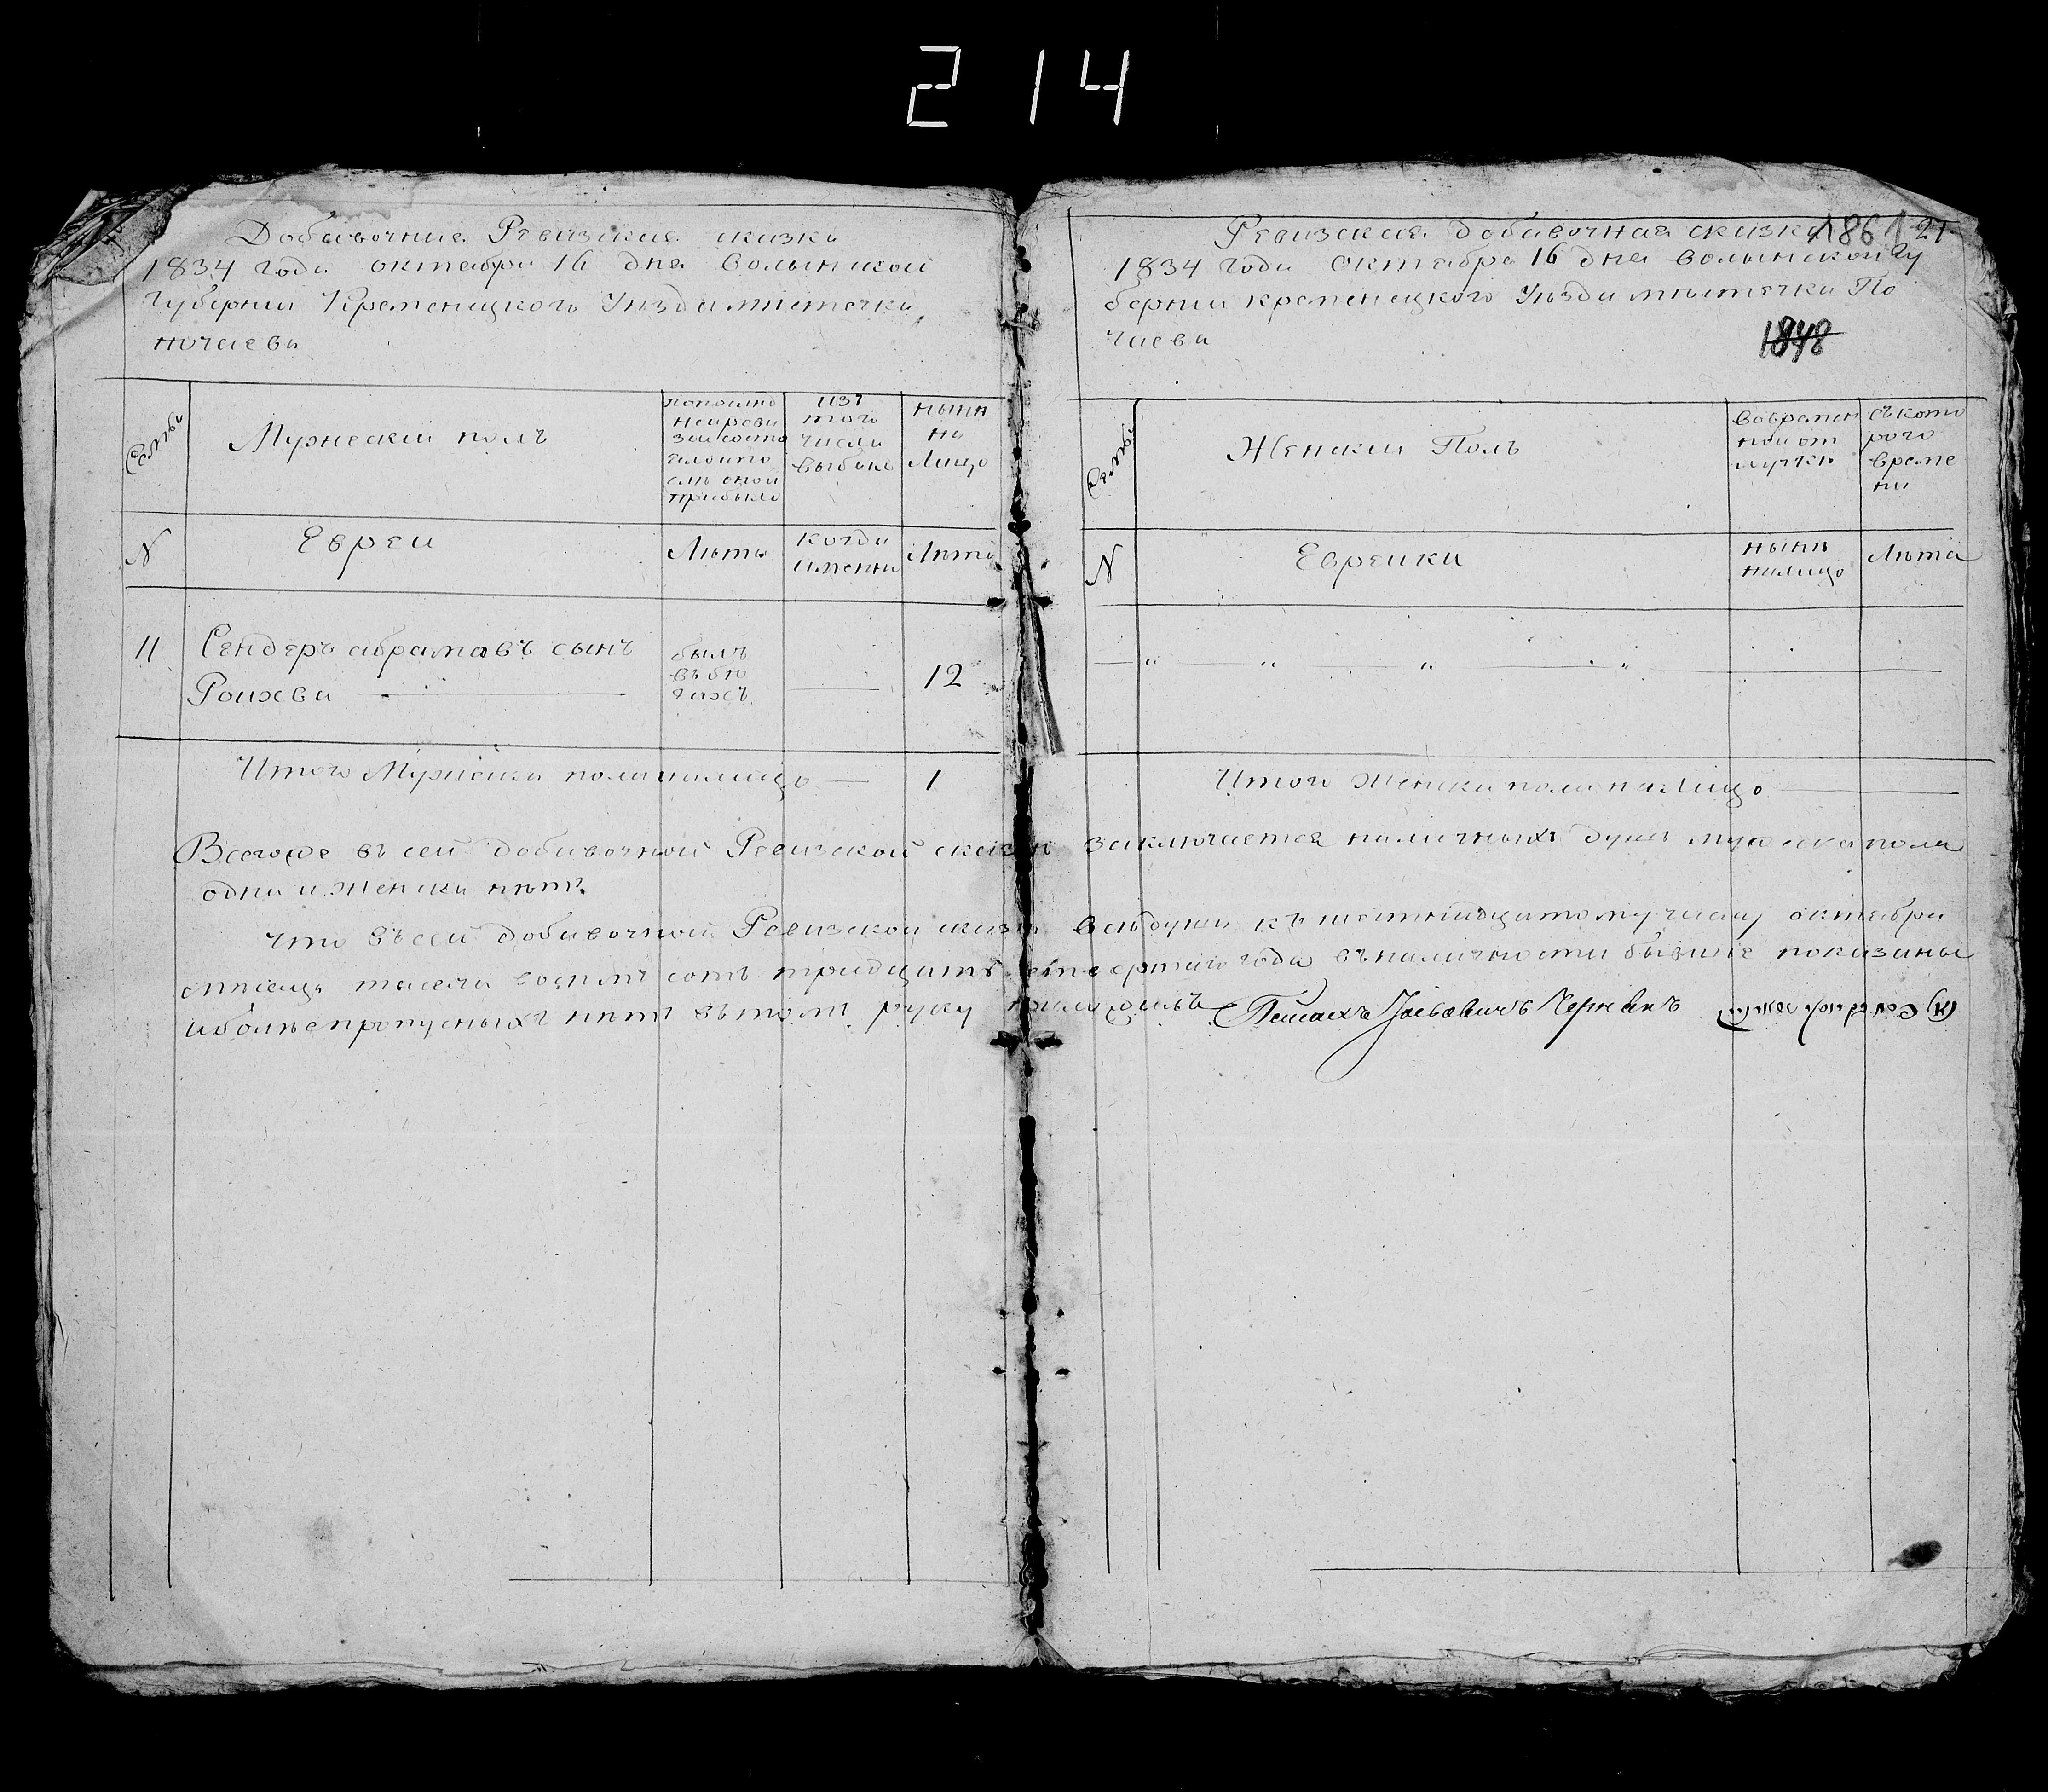 214
Добавочние Ревизские сказкы
1834 года октебра 16 дня волынской
Губернии Кременецкого Уезда местечка
почаева
Семьи
Мужеский полъ
по последней ревизии состояло и после оной прибыло
изъ того числа выбыло
ныне на Лицо
N
Евреи
Лета
когда именно
Лета
11
Сендеръ абрамовъ сынъ
Роихва
былъ въ бегахъ
12
Итого Мужеска пола налицо — 1
Ревизская добавочная сказка
186
121
1834 года октабра 16 дня волынской Гу
бернии кременецкого Уезда местечка По
чаева
1848
Семьи
Женский Полъ
во временной отлучке
съ которого времени
N
Евреики
ныне налицо
Лета
Итого Женска пола на Лицо
Всегоже въ сей добавочной Ревизской сказке заключается наличныхъ душъ мужеска пола
одна и женска нетъ
что въ сей добавочной Ревизской сказке все души къ шестнадцатому числу октебра
месяца тысеча восемъ сотъ тридцать четвертого года въ наличности бывшие показаны
и более пропусныхъ нетъ въ томъ руку приложилъ